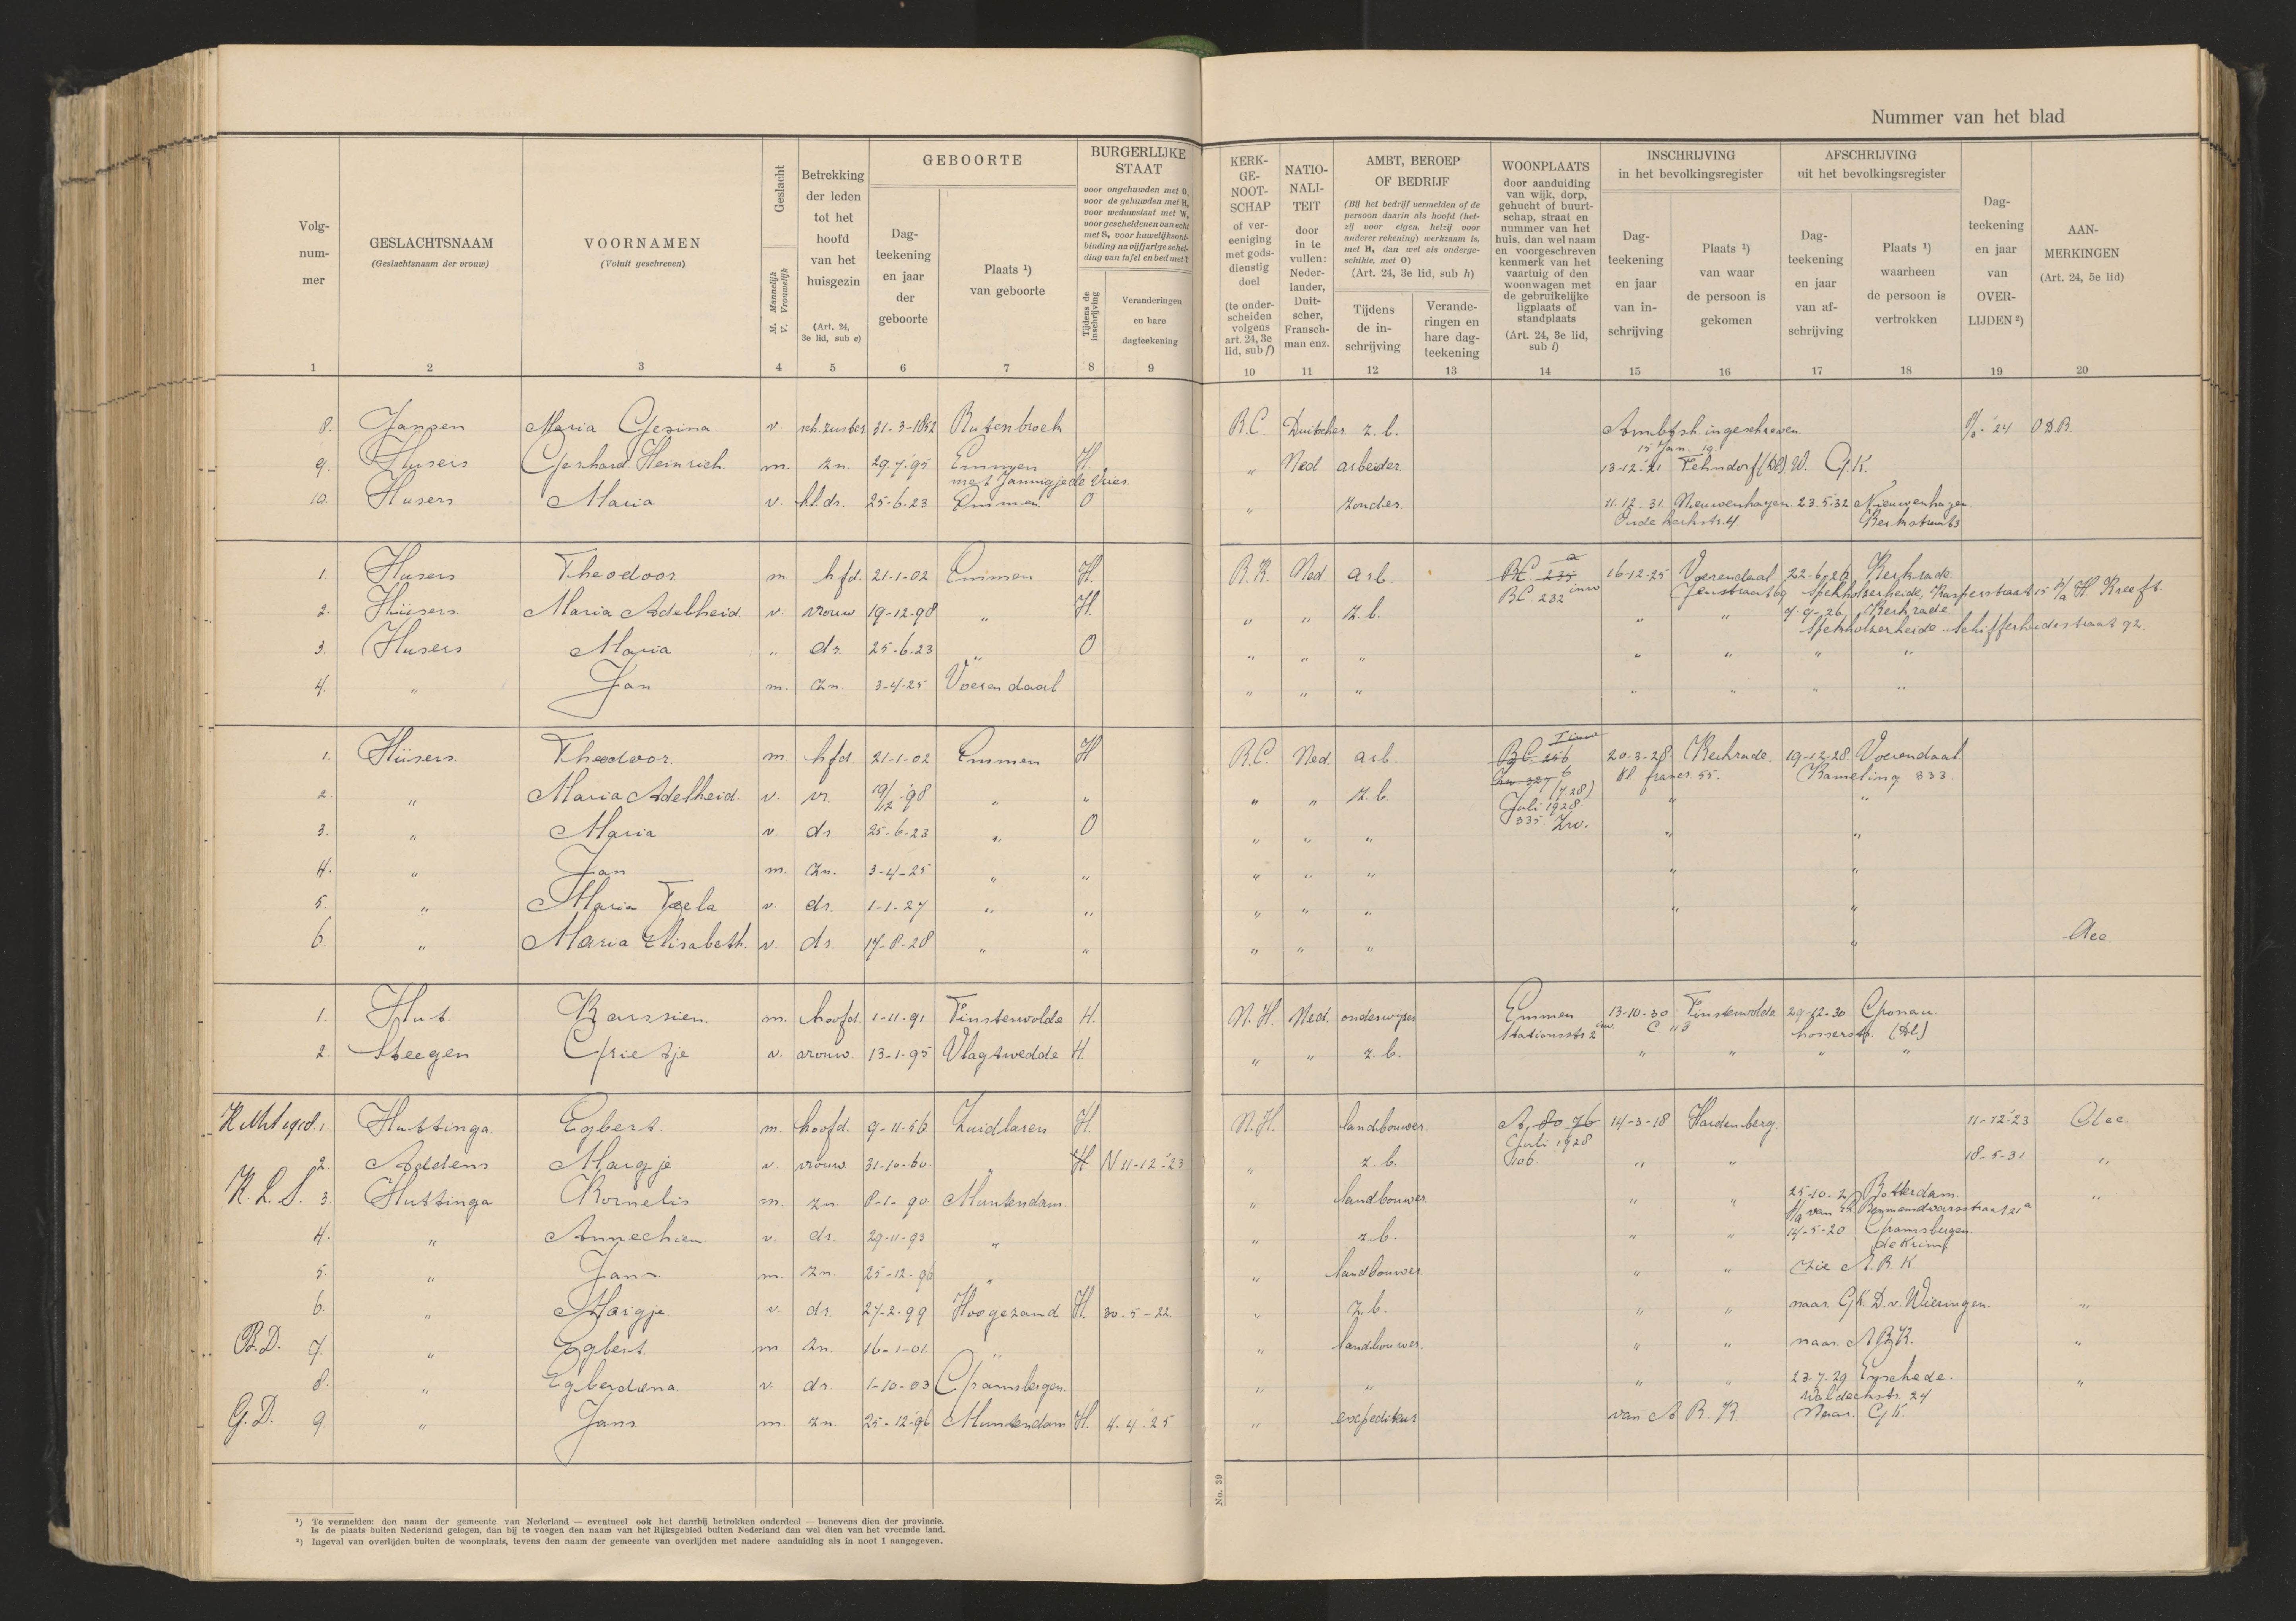 Nummer van het blad
Volg-nummer
GESLACHTSNAAM (Geslachtsnaam der vrouw)
VOORNAMEN (Voluit geschreven)
Geslacht M. Mannelijk V. Vrouwelijk
Betrekking der leden tot het hoofd van het huisgezin (Art. 24, 3e lid, sub c)
GEBOORTE
Dag-teekening en jaar der geboorte
Plaats ¹) van geboorte
BURGERLIJKE STAAT
voor ongehuwden met O, voor de gehuwden met H, voor weduwstaat met W, voor gescheidenen van echt met S, voor huwelijksont-binding na vijfjarige schei-ding van tafel en bed met T
Tijdens de inschrijving
Veranderingen en hare dagteekening
KERK-GE-NOOT-SCHAP of ver-eeniging met gods-dienstig doel (te onder-scheiden volgens art. 24, 3e lid, sub f)
NATIO-NALI-TEIT door in te vullen: Neder-lander, Duit-scher, Fransch-man enz.
AMBT, BEROEP OF BEDRIJF
(Bij het bedrijf vermelden of de persoon daarin als hoofd (het-zij voor eigen, hetzij voor anderer rekening) werkzaam is, met H, dan wel als onderge-schikte, met O) (Art. 24, 3e lid, sub h)
Tijdens de in-schrijving
Verande-ringen en hare dag-teekening
WOONPLAATS door aanduiding van wijk, dorp, gehucht of buurt-schap, straat en nummer van het huis, dan wel naam en voorgeschreven kenmerk van het vaartuig of den woonwagen met de gebruikelijke ligplaats of standplaats (Art. 24, 3e lid, sub i)
INSCHRIJVING in het bevolkingsregister
Dag-teekening en jaar van in-schrijving
Plaats ¹) van waar de persoon is gekomen
AFSCHRIJVING uit het bevolkingsregister
Dag-teekening en jaar van af-schrijving
Plaats ¹) waarheen de persoon is vertrokken
Dag-teekening en jaar van OVER-LIJDEN ²)
AAN-MERKINGEN (Art. 24, 5e lid)
1 2 3 4 5 6 7 8 9 10 11 12 13 14 15 16 17 18 19 20
8. Jansen Maria Gesina v. sch.zuster 31-3-1852 Rutenbroek R.C. Duitscher z.b. Ambtsh. ingeschreven '24 O.D.R.
15 Jan. 19
9. Husers Gerhard Heinrich m. zn. 29.7.'95 Emmen H. " Ned arbeider 13-12-'21 Fehndorf (Dl) W. G.K.
met Jannigje de Vries
10. Husers Maria v. kl.dr. 25-6-23 Emmen O " zonder 11.12.31 Nieuwenhagen 23.5.32 Nieuwenhagen
Oude kerkstr. 4. Kerkstraat 3
1. Husers Theodoor m. hfd. 21-1-02 Emmen H. R.K. Ned. arb. BC. 235 a 16-12-25 Voerendaal 22-6-26 Kerkrade
BC. 232 Spekholzerheide, Kasperstraat 15 p/a H. Kreeft.
2. Hüsers Maria Adelheid v. vrouw 19-12-98 " H. " " z.b. " " 7-9-26 Kerkrade
Spekholzerheide
3. Husers Maria " dr. 25-6-23 " O " " " " " " "
4. " Jan m. zn. 3-4-25 Voerendaal " " " " " " "
1. Hüsers Theodoor m. hfd. 21-1-02 Emmen H R.C. Ned. arb. BC. 256 20-3-28 Kerkrade 19-12-28 Voerendaal
Kameling 333.
2. " Maria Adelheid. v. vr. 19/12 -'98 " " " " z.b. Juli 1928 " "
335 Zw.
3. " Maria v. dr. 25-6-23 " O " " " " "
4. " Jan m. zn. 3-4-25 " " " " " " "
5. " Maria v. dr. 1-1-27 " " " " " " "
6. " Maria Elisabeth. v. dr. 17-8-28 " " " " " " Acc.
1. Hut. Barssien m. hoofd. 1-11-91 Finsterwolde H. N.H. Ned. onderwijzer Emmen 13-10-30 Finsterwolde 29-12-30 Gronau
Stationsstr 2 C 113 (Dl)
2. Steegen Grietje v. vrouw. 13-1-95 Vlagtwedde H. " " z.b. " " " "
1. Huttinga Egbert m. hoofd. 9-11-56 Zuidlaren H. N.H. landbouwer. A, 80 76 14-3-18 Hardenberg 11-12-'23 Acc.
Juli 1928
2. Addens Margje v. vrouw. 31-10-60 " H W 11-12-'23 " z.b. 106 " " 18-5-31 "
K.L.S. 3. Huttinga Kornelis m. zn. 8-1-90 Muntendam. " landbouwer " " 25-10-2 Rotterdam "
4. " Annechien v. dr. 29-11-93 " " z.b. " " 14-5-20 Gramsbergen
de Krim
5. " Jans m. zn. 25-12-96 " " landbouwer. " " zie A.R.K.
6. " Margje v. dr. 27-2-99 Hoogezand H. 30-5-22. " z.b. " " naar G.K. D. v. Wieringen. "
B.D. 7. " Egbert m. zn. 16-1-01 " " landbouwer. " " naar A.B.K. "
8. " Egberdina v. dr. 1-10-03 Gramsbergen. " " " " 23-7-29 Enschede. "
Waldeckstr. 24
G.D. 9. " Jans m. zn. 25-12-'96 Muntendam H. 4-4-'25 " expediteur van A.R.K. Naar G.K.
¹) Te vermelden: den naam der gemeente van Nederland — eventueel ook het daarbij betrokken onderdeel — benevens dien der provincie.
Is de plaats buiten Nederland gelegen, dan bij te voegen den naam van het Rijksgebied buiten Nederland dan wel dien van het vreemde land.
²) Ingeval van overlijden buiten de woonplaats, tevens den naam der gemeente van overlijden met nadere aanduiding als in noot 1 aangegeven.
No. 30